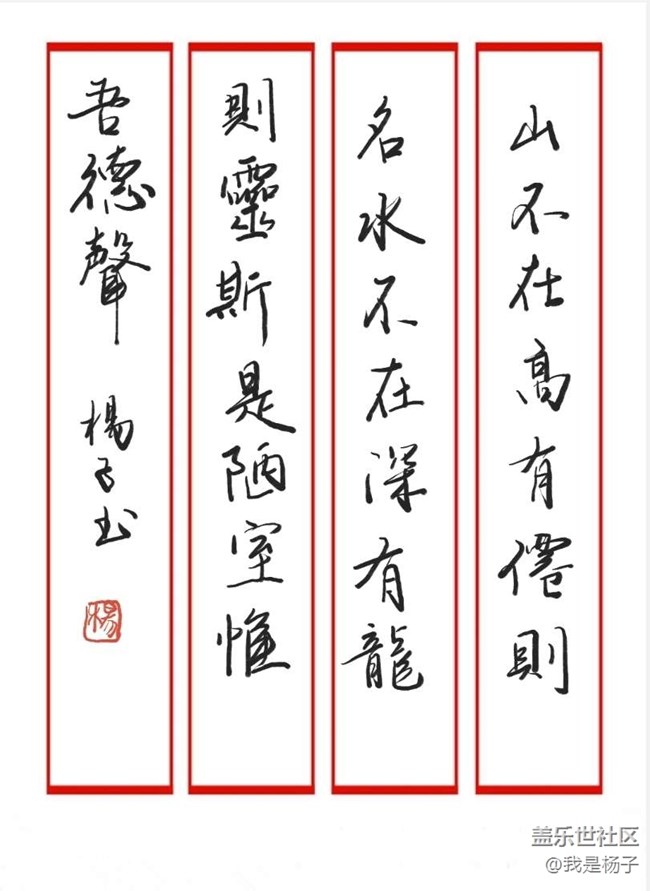 山不在高有僊則
名水不在深有龍
則靈斯是陋室惟
吾德聲
楊子书
楊
盖乐世社区
@我是杨子